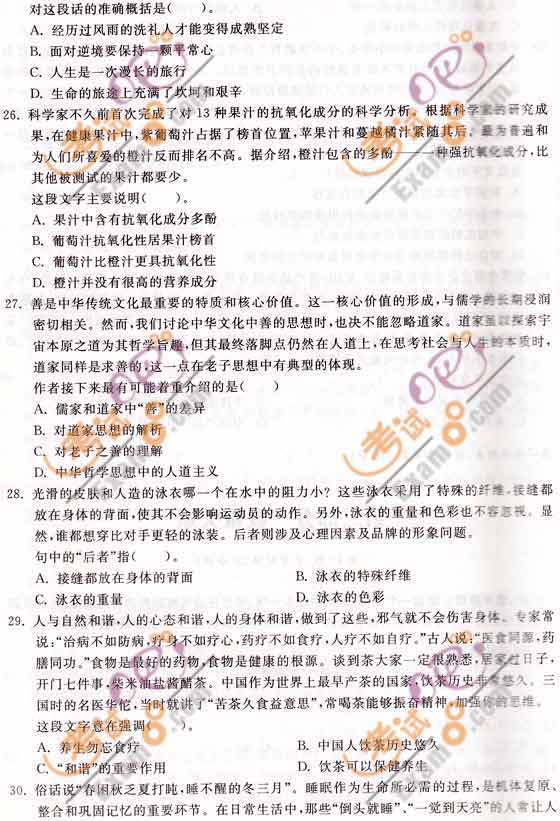 对这段话的准确概括是(　　)。
A. 经历过风雨的洗礼人才能变得成熟坚定
B. 面对逆境要保持一颗平常心
C. 人生是一次漫长的旅行
D. 生命的旅途上充满了坎坷和艰辛
26. 科学家不久前首次完成了对 13 种果汁的抗氧化成分的科学分析。根据科学家的研究成
果,在健康果汁中,紫葡萄汁占据了榜首位置,苹果汁和蔓越橘汁紧随其后。最为普遍和
为人们所喜爱的橙汁反而排名不高。据介绍,橙汁包含的多酚——一种强抗氧化成分,比
其他被测试的果汁都要少。
这段文字主要说明(　　)。
A. 果汁中含有抗氧化成分多酚
B. 葡萄汁抗氧化性居果汁榜首
C. 葡萄汁比橙汁更具抗氧化性
D. 橙汁并没有很高的营养成分
27. 善是中华传统文化最重要的特质和核心价值。这一核心价值的形成,与儒学的长期浸润
密切相关。然而,我们讨论中华文化中善的思想时,也决不能忽略道家。道家虽以探索宇
宙本原之道为其哲学旨趣,但其最终落脚点仍然在人道上,在思考社会与人生的本质时,
道家同样是求善的,这一点在老子思想中有典型的体现。
作者接下来最有可能着重介绍的是(　　)
A. 儒家和道家中“善”的差异
B. 对道家思想的解析
C. 对老子之善的理解
D. 中华哲学思想中的人道主义
28. 光滑的皮肤和人造的泳衣哪一个在水中的阻力小？这些泳衣采用了特殊的纤维,接缝都
放在身体的背面,使其不会影响运动员的动作。另外,泳衣的重量和色彩也不容忽视。显
然,谁都想穿比对手更轻的泳装。后者则涉及心理因素及品牌的形象问题。
句中的“后者”指(　　)。
A. 接缝都放在身体的背面 B. 泳衣的特殊纤维
C. 泳衣的重量 D. 泳衣的色彩
29. 人与自然和谐,人的心态和谐,人的身体和谐,做到了这些,邪气就不会伤害身体。专家常
说:“治病不如防病,疗身不如疗心,药疗不如食疗,人疗不如自疗。”古人说:“医食同源,药
膳同功。”食物是最好的药物,食物是健康的根源。谈到茶大家一定很熟悉,居家过日子,
开门七件事,柴米油盐酱醋茶。中国作为世界上最早产茶的国家,饮茶历史非常悠久。三
国时的名医华佗,当时就讲了“苦茶久食益意思”,常喝茶能够振奋精神,加强你的思维。
这段文字意在强调(　　)。
A. 养生勿忘食疗 B. 中国人饮茶历史悠久
C. “和谐”的重要作用 D. 饮茶可以保健养生
30. 俗话说“春困秋乏夏打盹,睡不醒的冬三月”。睡眠作为生命所必需的过程,是机体复原、
整合和巩固记忆的重要环节。在日常生活中,那些“倒头就睡”、“一觉到天亮”的人常让人
考试
Exam8.com
考试
Exam8.com
考试
Exam8.com
考试
Exam8.com